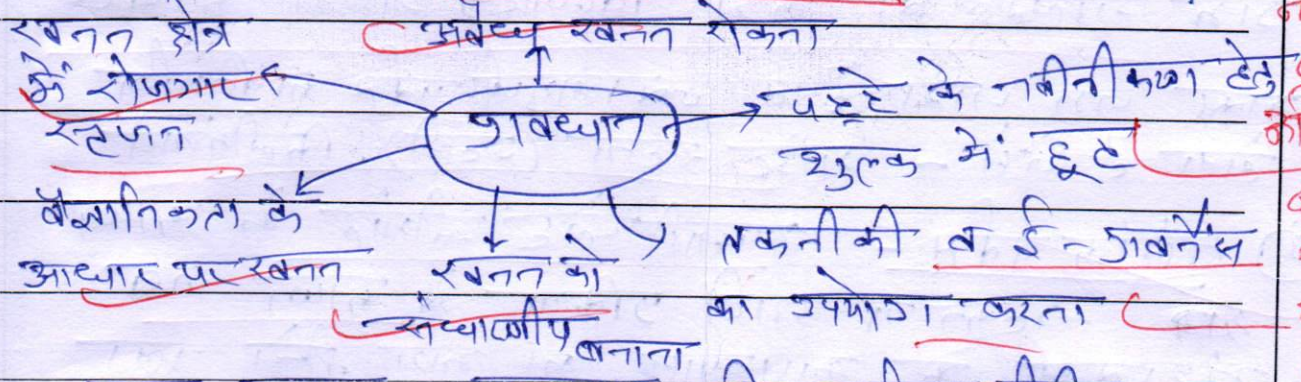 अवैध खनन रोकना
खनन क्षेत्र
में रोजगार
सृजन
प्रावधान
पट्टे के नवीनीकरण हेतु
शुल्क में छूट
वैज्ञानिकता के
आधार पर खनन
खनन को
संधारणीय बनाना
तकनीकी व ई-गवर्नेंस
का उपयोग करना